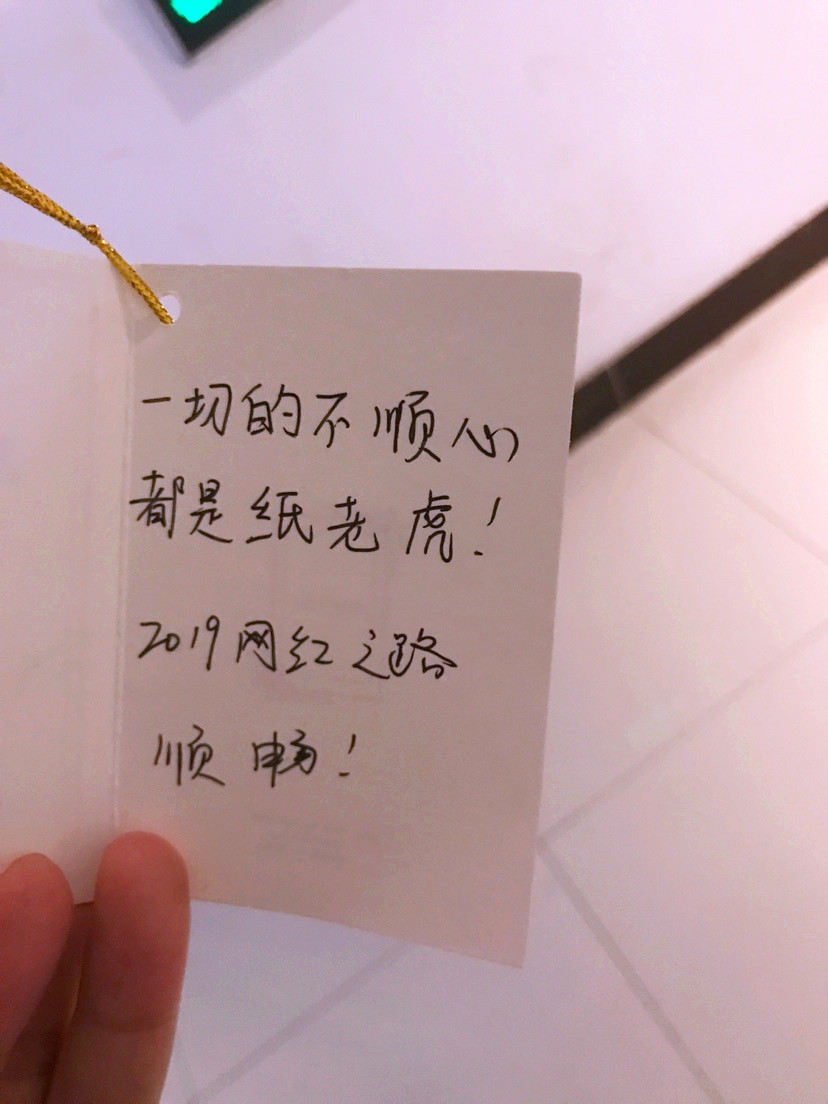 一切的不顺心
都是纸老虎!
2019网红之路
顺畅!